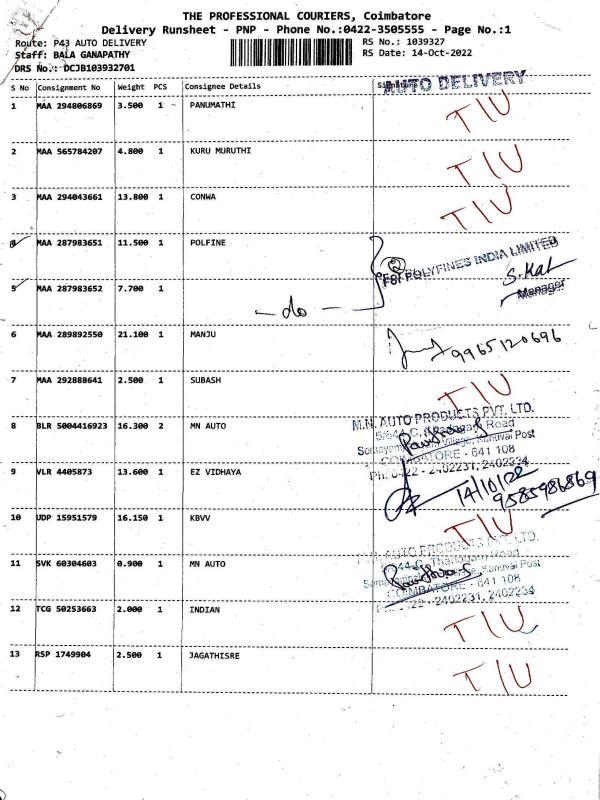 THE PROFESSIONAL COURIERS, Coimbatore
Delivery Runsheet - PNP - Phone No.:0422-3505555 - Page No.:1
Route: P43 AUTO DELIVERY
RS No.: 1039327
Staff: BALA GANAPATHY
RS Date: 14-Oct-2022
DRS No.: DCJB103932701
S No Consignment No Weight PCS Consignee Details Signature
AUTO DELIVERY
1 MAA 294806869 3.500 1 PANUMATHI T/U
2 MAA 565784207 4.800 1 KURU MURUTHI T/U
3 MAA 294043661 13.800 1 CONWA T/U
4 MAA 287983651 11.500 1 POLFINE
2
For POLYFINES INDIA LIMITED
S. Kal
Manager
5 MAA 287983652 7.700 1
- do -
6 MAA 289892550 21.100 1 MANJU 9965120696
7 MAA 292888641 2.500 1 SUBASH T/U
8 BLR 5004416923 16.300 2 MN AUTO
M.N. AUTO PRODUCTS PVT. LTD.
Road
Village, Kanuvai Post
COIMBATORE - 641 108
Ph: 0422 - 2402231, 2402234
9 VLR 4405873 13.600 1 EZ VIDHAYA
14/10/22
9585986869
10 UDP 15951579 16.150 1 KBVV T/U
11 SVK 60304603 0.900 1 MN AUTO
M.N. AUTO PRODUCTS PVT. LTD.
Thadagam Road
Kanuvai Post
COIMBATORE - 641 108
2402231, 2402234
12 TCG 50253663 2.000 1 INDIAN T/U
13 RSP 1749904 2.500 1 JAGATHISRE T/U